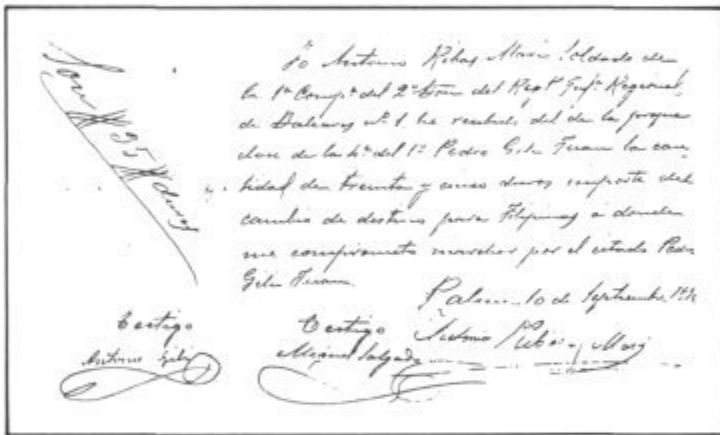 Son # 35 # duros
Yo Antonio Ribas Mari Soldado de
la 1ª Compª del 2º Bon del Regtº Infª Regional
de Baleares nº 1. he recibido del de la propia
clase de la 4ª del 1º Pedro Gelu Juan la can
tidad de treinta y cinco duros importe del
cambio de destino para Filipinas a donde
me comprometo marchar por el citado Pedro
Juan.
Palma 10 de Septiembre
Testigo
Antonio
Testigo
Miguel Salgado
Antonio Ribas y Mari